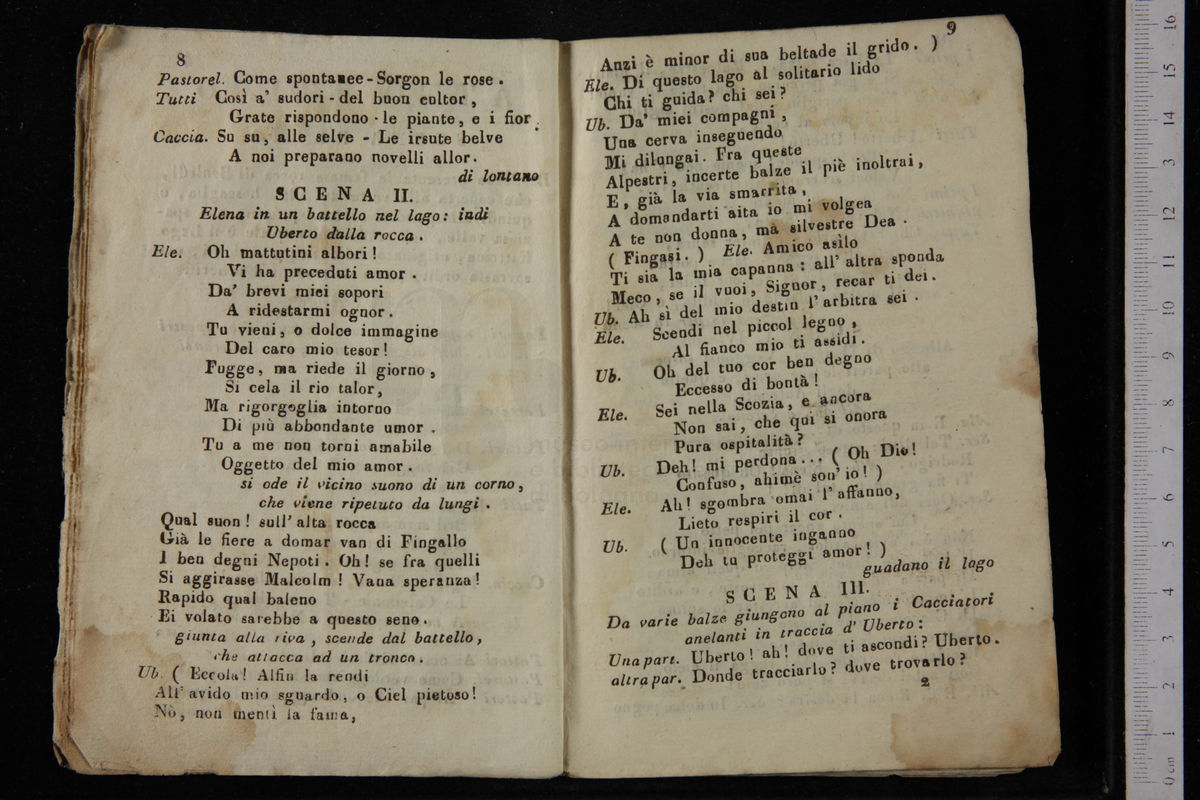 8
Pastorel. Come spontanee - Sorgon le rose .
Tutti Così a' sudori - del buon cultor ,
Grate rispondono - le piante, e i fior .
Caccia. Su su, alle selve - Le irsute belve
A noi preparano novelli allor.
di lontano
SCENA II.
Elena in un battello nel lago: indi
Uberto dalla rocca .
Ele. Oh mattutini albori !
Vi ha preceduti amor .
Da' brevi miei sopori
A ridestarmi ognor .
Tu vieni, o dolce immagine
Del caro mio tesor !
Fugge, ma riede il giorno ,
Si cela il rio talor,
Ma rigorgoglia intorno
Di più abbondante umor .
Tu a me non torni amabile
Oggetto del mio amor .
si ode il vicino suono di un corno,
che viene ripetuto da lungi .
Qual suon ! sull' alta rocca
Già le fiere a domar van di Fingallo
I ben degni Nepoti . Oh! se fra quelli
Si aggirasse Malcolm ! Vana speranza !
Rapido qual baleno
Ei volato sarebbe a questo seno.
giunta alla riva , scende dal battello,
che attacca ad un tronco .
Ub. ( Eccola! Alfin la rendi
All' avido mio sguardo, o Ciel pietoso!
Nò, non mentì la fama,
9
Anzi è minor di sua beltade il grido. )
Ele. Di questo lago al solitario lido
Chi ti guida? chi sei?
Ub. Da' miei compagni ,
Una cerva inseguendo
Mi dilungai. Fra queste
Alpestri, incerte balze il piè inoltrai,
E, già la via smarrita ,
A domandarti aita io mi volgea
A te non donna, ma silvestre Dea .
( Fingasi. ) Ele. Amico asilo
Ti sia la mia capanna : all' altra sponda
Meco, se il vuoi, Signor, recar ti dei.
Ub. Ah sì del mio destin l' arbitra sei .
Ele. Scendi nel piccol legno ,
Al fianco mio ti assidi .
Ub. Oh del tuo cor ben degno
Eccesso di bontà !
Ele. Sei nella Scozia, e ancora
Non sai, che qui si onora
Pura ospitalità ?
Ub. Deh! mi perdona ... ( Oh Dio!
Confuso, ahimè son' io! )
Ele. Ah! sgombra omai l' affanno,
Lieto respiri il cor .
Ub. ( Un innocente inganno
Deh tu proteggi amor! )
guadano il lago
SCENA III.
Da varie balze giungono al piano i Cacciatori
anelanti in traccia d' Uberto :
Una part. Uberto! ah! dove ti ascondi? Uberto.
altra par. Donde tracciarlo? dove trovarlo?
2